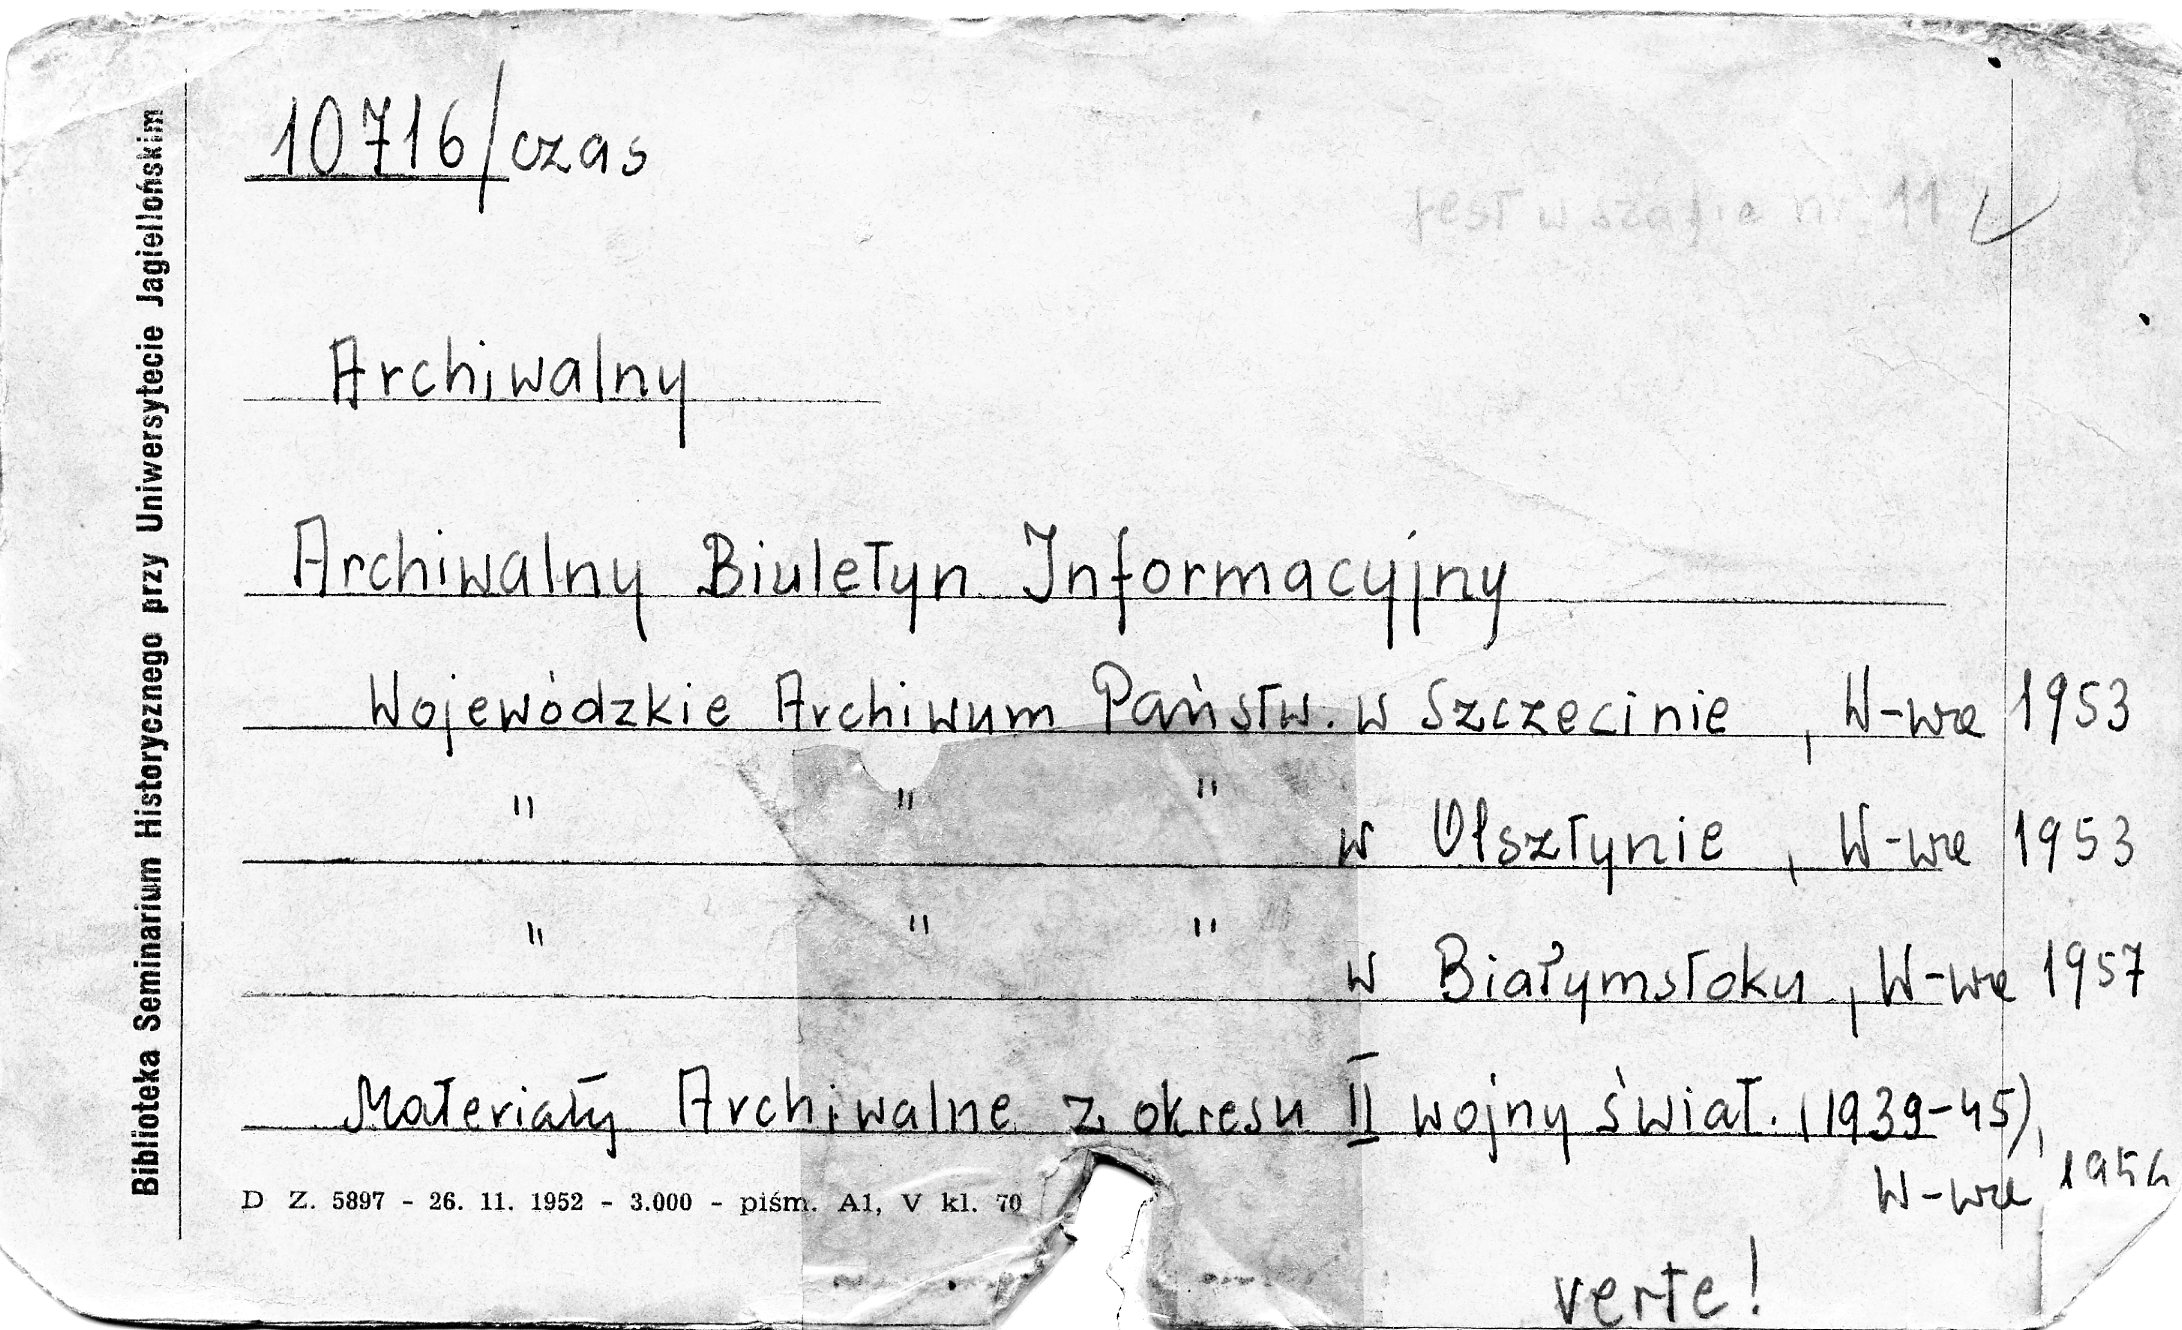 10716/czas
jest w szafie nr. 11
Archiwalny
Archiwalny Biuletyn Informacyjny
Wojewódzkie Archiwum Państw. w Szczecinie, W-wa 1953
" " " w Olsztynie, W-wa 1953
" " " w Białymstoku, W-wa 1957
Materiały Archiwalne z okresu II wojny świat. (1939-45),
W-wa 1954
D Z. 5897 - 26. 11. 1952 - 3.000 - piśm. A1, V kl. 70
verte!
Biblioteka Seminarium Historycznego przy Uniwersytecie Jagielońskim